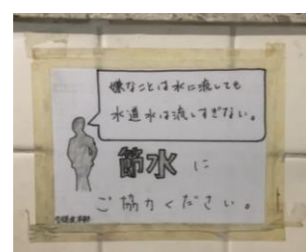 嫌なことは水に流しても
水道水は流しすぎない。
節水に
ご協力ください。